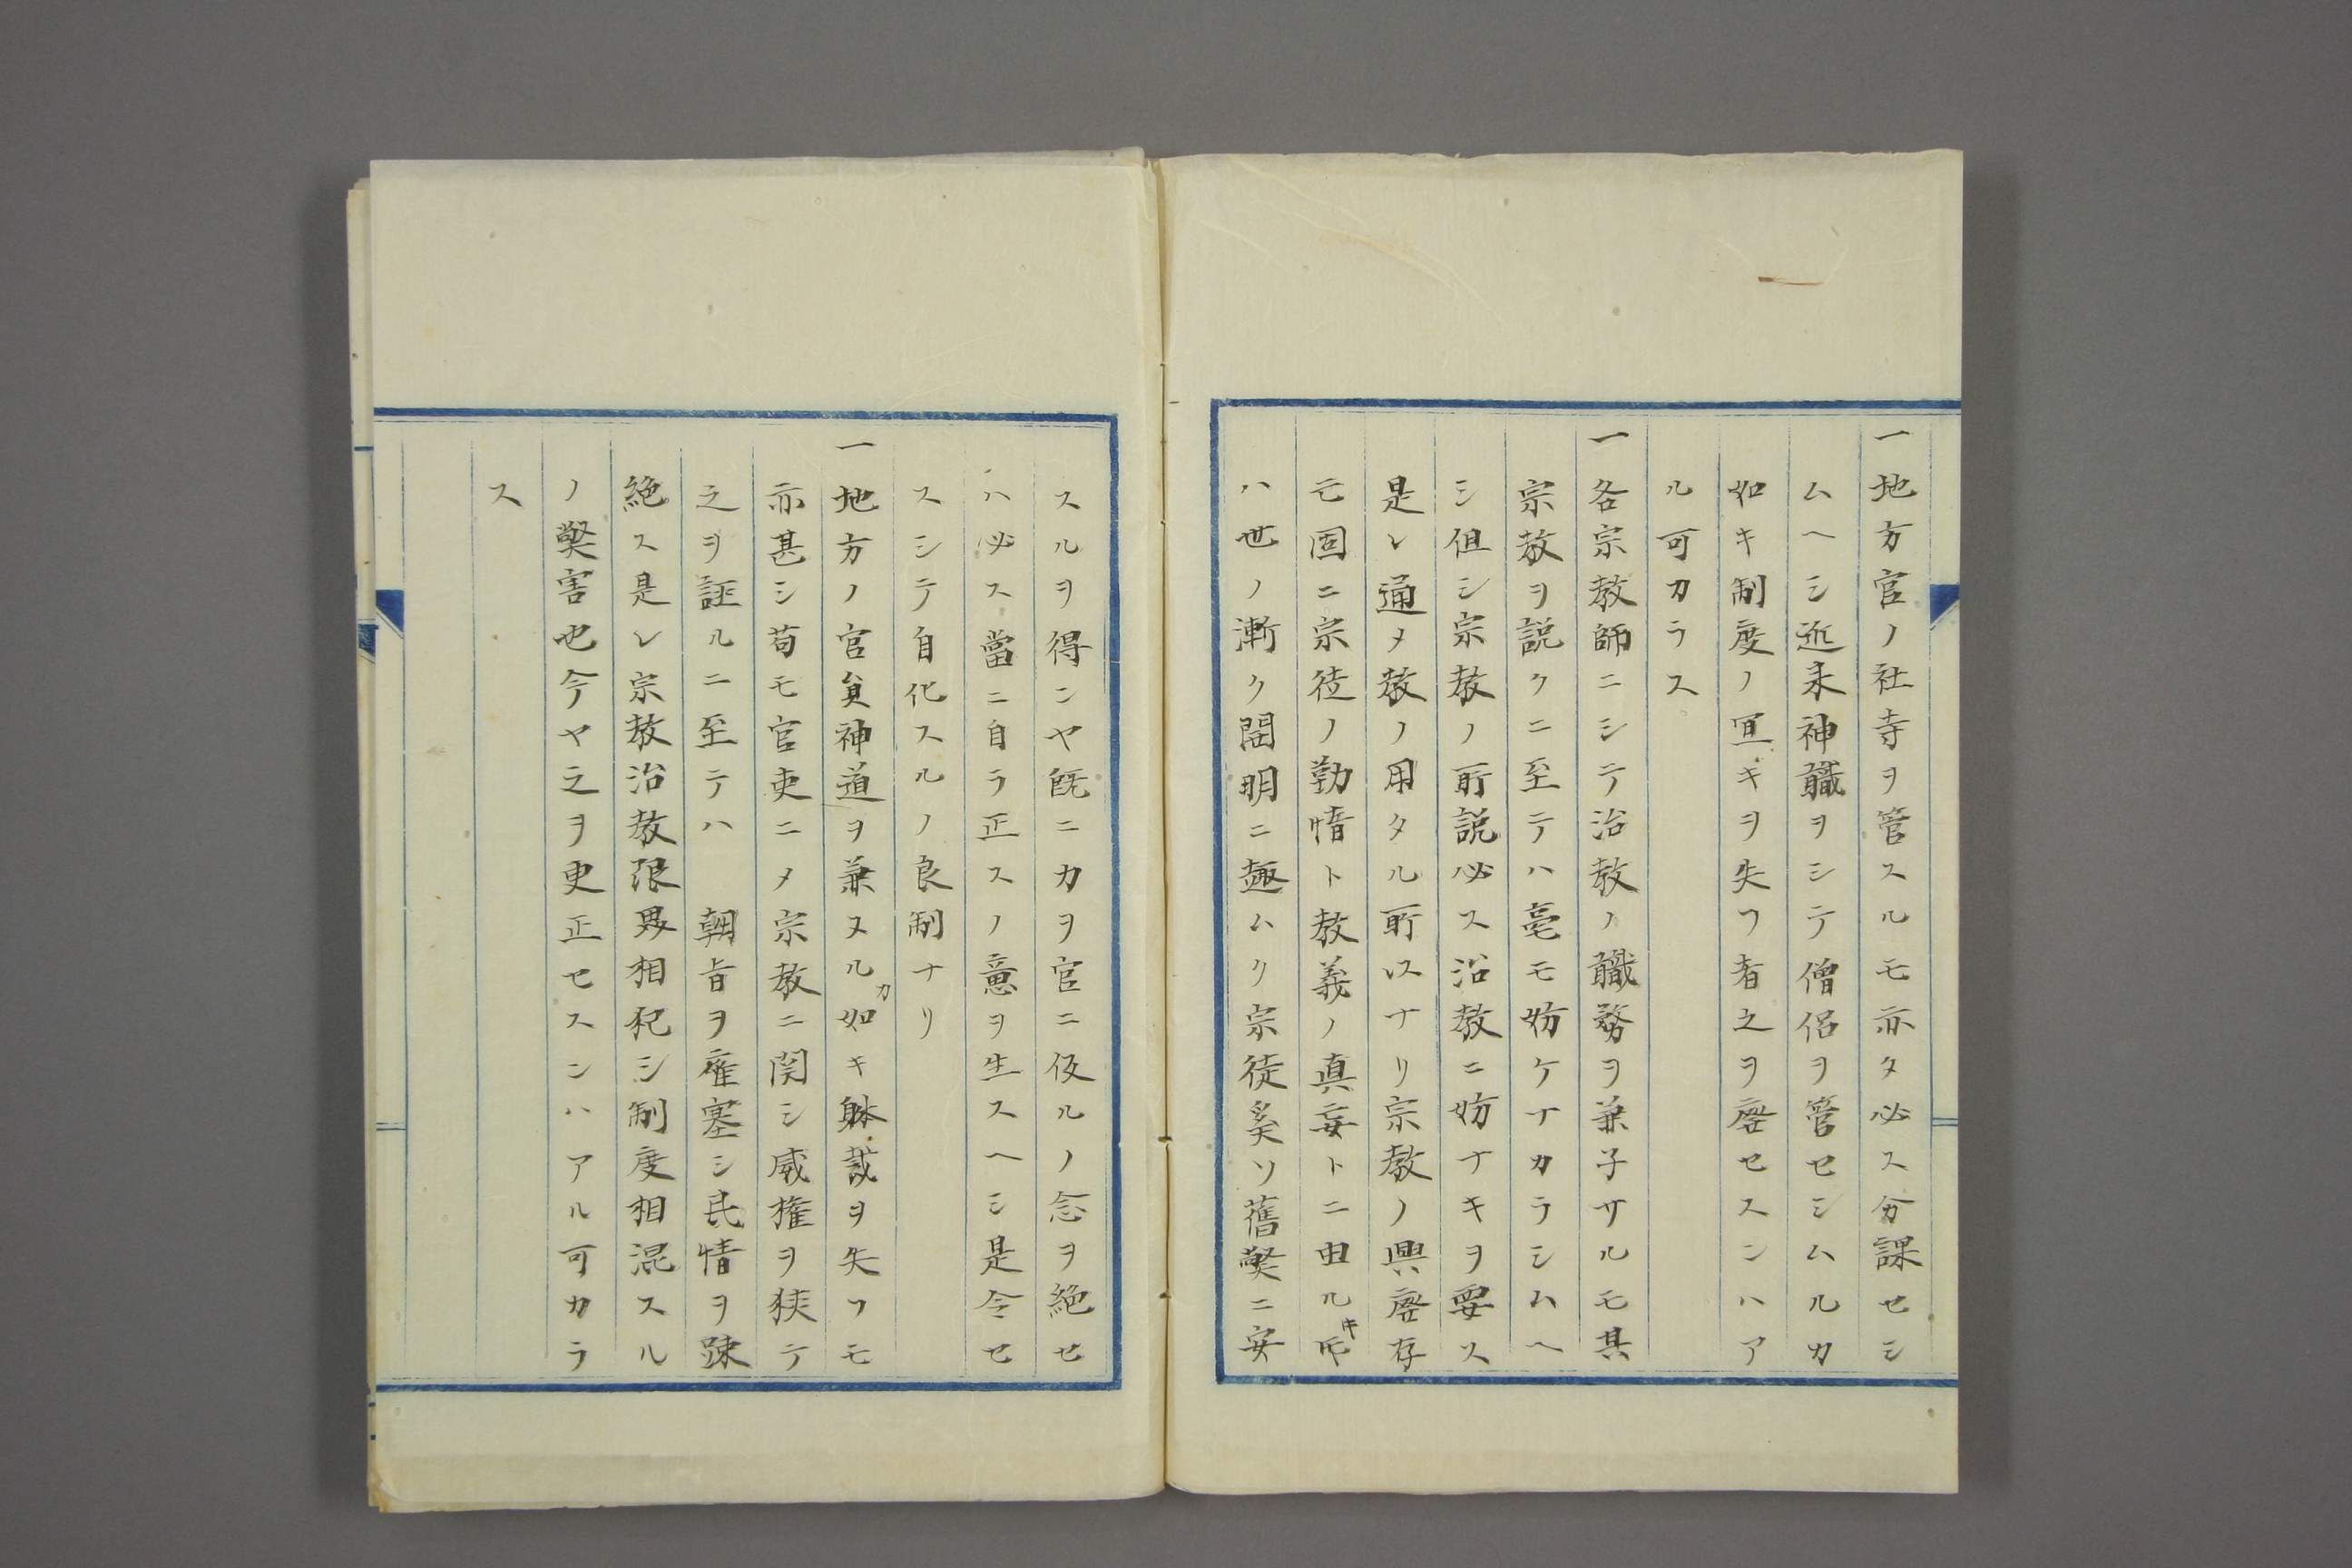 一地方官ノ社寺ヲ管スルモ亦タ必ス分課セシ
ムヘシ近来神職ヲシテ僧侶ヲ管セシムルカ
如キ制度ノ宜キヲ失フ者之ヲ廃セスンハア
ル可カラス
一各宗教師ニシテ治教ノ職務ヲ兼子サルモ其
宗教ヲ説クニ至テハ毫モ妨ケナカラシムヘ
シ但シ宗教ノ所説必ス治教ニ妨ナキヲ要ス
是レ通メ教ノ用タル所以ナリ宗教ノ興廃存
亡固ニ宗徒ノ勤惰ト教義ノ真妄トニ由ルキ所
ハ世ノ漸ク開明ニ趣ムク宗徒奚ソ舊弊ニ安
スルヲ得ンヤ既ニカヲ官ニ仮ルノ念ヲ絶セ
ハ必ス當ニ自ラ正スノ意ヲ生スヘシ是令セ
スシテ自化スルノ良制ナリ
一地方ノ官員神道ヲ兼ヌルカ如キ躰裁ヲ失フモ
亦甚シ苟モ官吏ニメ宗教ニ関シ威権ヲ狭テ
之ヲ誣ルニ至テハ 朝旨ヲ壅塞シ民情ヲ踈
絶ス是レ宗教治教限界相犯シ制度相混スル
ノ弊害也今ヤ之ヲ更正セスンハアル可カラ
ス